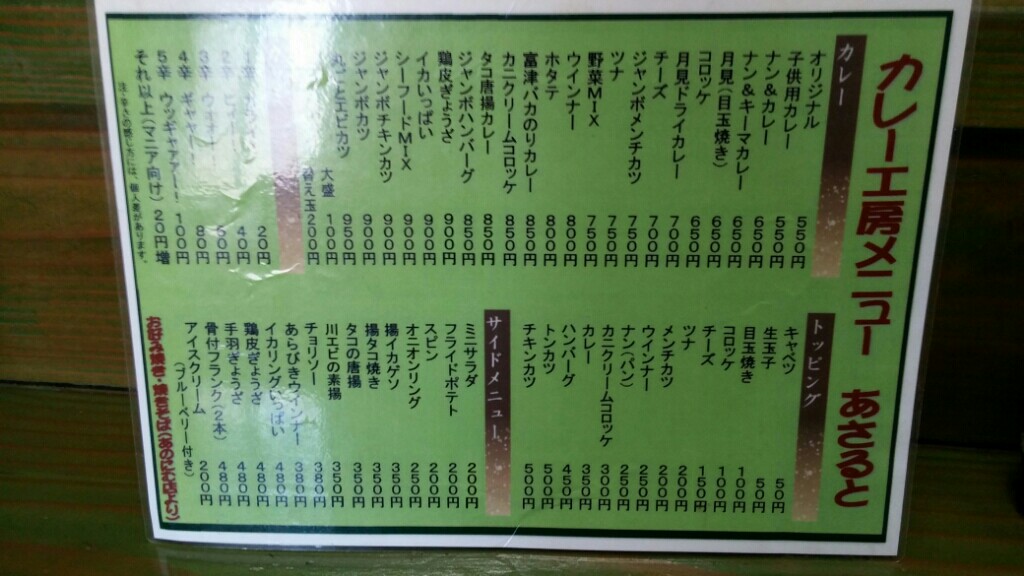 カレー工房メニュー　あさると
カレー
オリジナル 550円
子供用カレー 550円
ナン&カレー 650円
ナン&キーマカレー 650円
月見(目玉焼き) 650円
コロッケ 650円
月見ドライカレー 700円
チーズ 700円
ジャンボメンチカツ 750円
ツナ 750円
野菜MIX 750円
ウインナー 800円
ホタテ 800円
富津バカのりカレー 850円
カニクリームコロッケ 850円
タコ唐揚カレー 850円
ジャンボハンバーグ 850円
鶏皮ぎょうざ 900円
イカいっぱい 900円
シーフードMIX 900円
ジャンボチキンカツ 900円
ジャンボカツ 900円
丸ごとエビカツ 950円
大盛 100円
替え玉 200円
20円
2辛 40円
3辛 60円
4辛 ギャヤー! 80円
5辛 ウッギャアアー! 100円
それ以上(マニア向け) 20円増
注・辛さの感じ方には、個人差があります。
トッピング
キャベツ 50円
生玉子 50円
目玉焼き 100円
コロッケ 100円
チーズ 150円
ツナ 200円
メンチカツ 200円
ウインナー 250円
ナン(パン) 250円
カニクリームコロッケ 300円
カレー 350円
ハンバーグ 450円
トンカツ 500円
チキンカツ 500円
サイドメニュー
ミニサラダ 200円
フライドポテト 200円
スピン 200円
オニオンリング 250円
揚イカゲソ 350円
揚タコ焼き 350円
タコの唐揚 350円
川エビの素揚 350円
チョリソー 380円
あらびきウインナー 380円
イカリングいっぱい 480円
鶏皮ぎょうざ 480円
手羽ぎょうざ 480円
骨付フランク(2本) 480円
アイスクリーム 200円
(ブルーベリー付き)
お好み焼き・焼きそば(あのにわ店より)